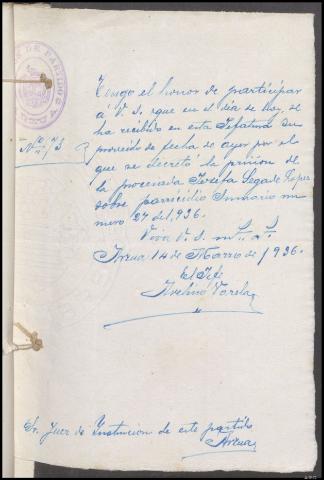 DE PARTIDO
Nº 73
Tengo el honor de participar
á V. S. que en el dia de hoy, se
ha recibido en esta Jefatura su
proveido de fecha de ayer por el
que se decretó la prision de
la procesada Josefa Legade Lopez
sobre parricidio Sumario nu-
mero 27 del 1,936.
Viva V. S. ms. as.
Arzua 14 de Marzo de 1936.
El Jefe
Avelino Varela
Sr. Juez de Instrucion de este partido
Arzua